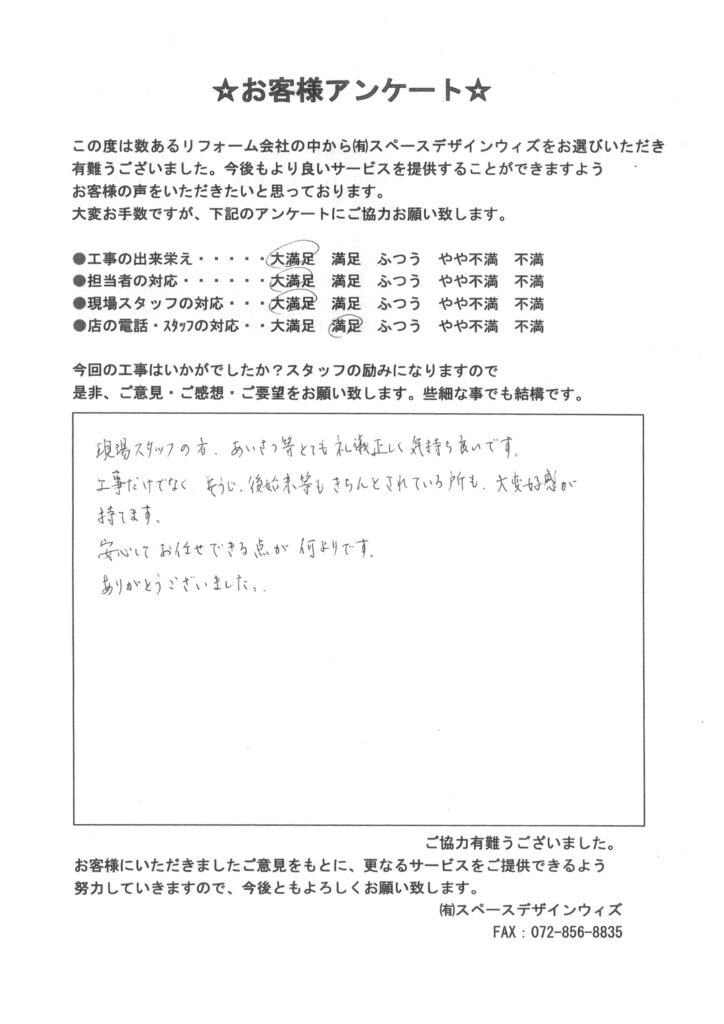 ☆お客様アンケート☆
この度は数あるリフォーム会社の中から㈲スペースデザインウィズをお選びいただき
有難うございました。今後もより良いサービスを提供することができますよう
お客様の声をいただきたいと思っております。
大変お手数ですが、下記のアンケートにご協力お願い致します。
●工事の出来栄え・・・・・大満足 満足 ふつう やや不満 不満
●担当者の対応・・・・・・大満足 満足 ふつう やや不満 不満
●現場スタッフの対応・・・大満足 満足 ふつう やや不満 不満
●店の電話・ｽﾀｯﾌの対応・・大満足 満足 ふつう やや不満 不満
今回の工事はいかがでしたか？スタッフの励みになりますので
是非、ご意見・ご感想・ご要望をお願い致します。些細な事でも結構です。
現場スタッフの方、あいさつ等とても礼儀正しく気持ち良いです。
工事だけでなく、そうじ、後始末等もきちんとされている所も、大変好感が
持てます。
安心してお任せできる点が何よりです。
ありがとうございました。
ご協力有難うございました。
お客様にいただきましたご意見をもとに、更なるサービスをご提供できるよう
努力していきますので、今後ともよろしくお願い致します。
㈲スペースデザインウィズ
FAX：072-856-8835